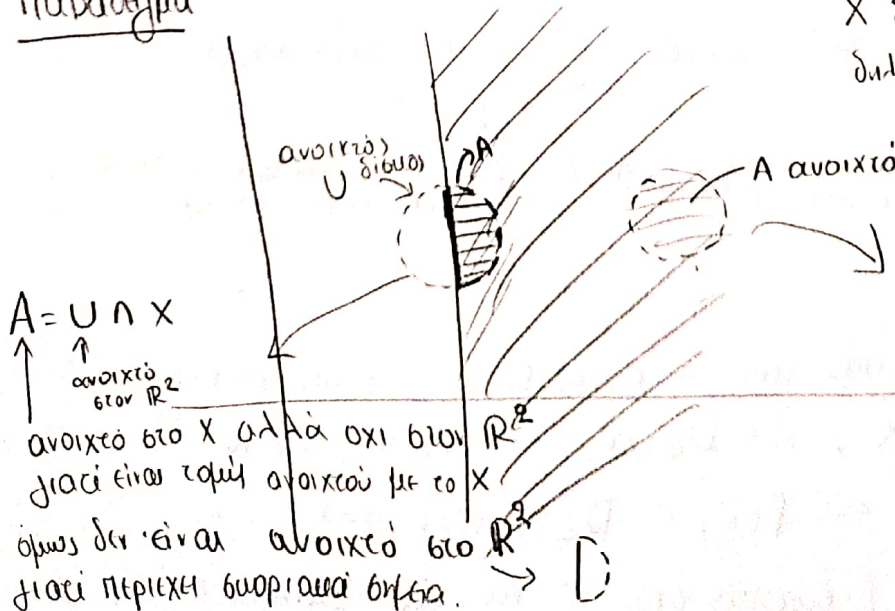 Παράδειγμα
X
δηλ
ανοιχτός
δίσκος
U
A
A ανοιχτό
A = U ∩ X
ανοιχτό
στον ℝ²
ανοιχτό στο X αλλά οχι στον ℝ²
γιατί είναι τομή ανοιχτού με το X
όμως δεν είναι ανοιχτό στο ℝ²
γιατί περιέχει συνοριακά σημεία.